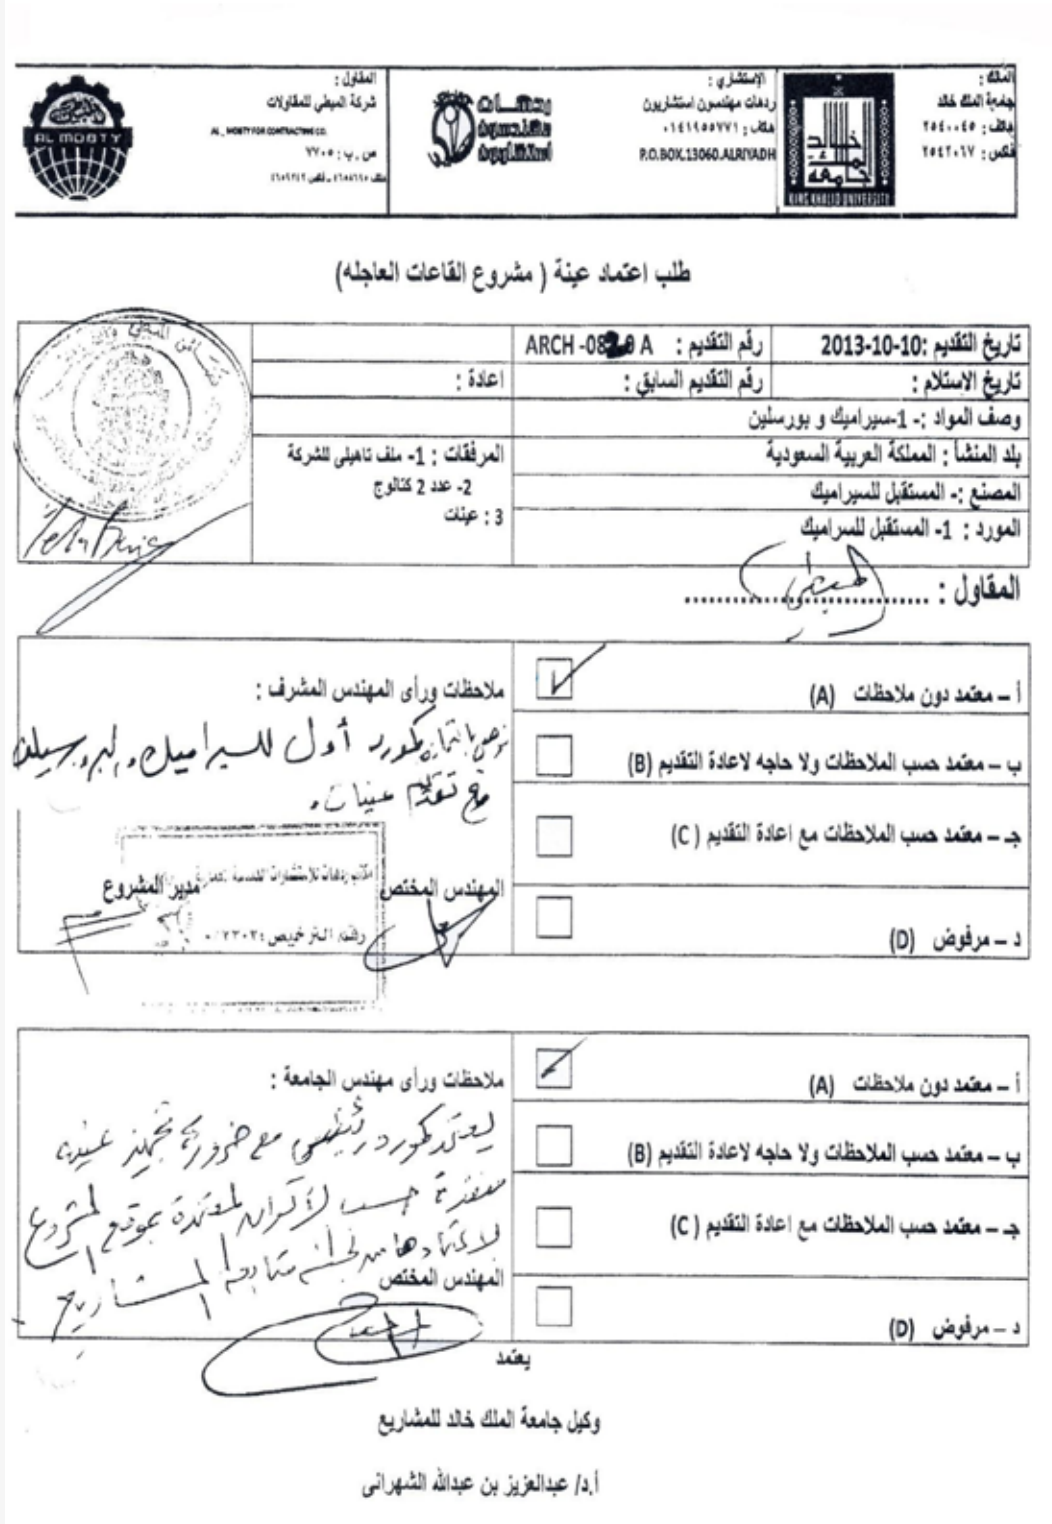 المالك :
جامعة الملك خالد
هاتف : ٢٥٤٠٠٤٥
فاكس : ٢٥٤٢٠٦٧
KING KHALID UNIVERSITY
الإستشاري :
ردهات مهندسون استشاريون
هاتف : ٠١٤١٩٥٥٧٧١
P.O.BOX.13060.ALRIYADH
ردهات
مهندسون
استشاريون
المقاول :
شركة المبطي للمقاولات
AL _ MOBTY FOR CONTRACTING CO.
ص . ب : ٧٧٠٥
AL MOBTY
طلب اعتماد عينة ( مشروع القاعات العاجله)
تاريخ التقديم :10-10-2013
رقم التقديم : ARCH -0820 A
تاريخ الاستلام :
رقم التقديم السابق :
اعادة :
وصف المواد :- 1-سيراميك و بورسلين
بلد المنشأ : المملكة العربية السعودية
المصنع :- المستقبل للسيراميك
المورد : 1- المستقبل للسراميك
المرفقات : 1- ملف تاهيلى للشركة
2- عدد 2 كتالوج
3 : عينات
المقاول : ..............................
أ – معتمد دون ملاحظات (A)
ب – معتمد حسب الملاحظات ولا حاجه لاعادة التقديم (B)
جـ – معتمد حسب الملاحظات مع اعادة التقديم ( C)
د – مرفوض (D)
ملاحظات ورأى المهندس المشرف :
نوصي باعتماده كمورد أول للسيراميك والبورسيلان
مع تقديم عينات.
المهندس المختص
مدير المشروع
أ – معتمد دون ملاحظات (A)
ب – معتمد حسب الملاحظات ولا حاجه لاعادة التقديم (B)
جـ – معتمد حسب الملاحظات مع اعادة التقديم ( C)
د – مرفوض (D)
ملاحظات ورأى مهندس الجامعة :
يعتمد كمورد رئيسي مع ضرورة تجهيز عينه
منفذة حسب الألوان المعتمدة بموقع المشروع
لاعتمادها من لجنة متابعة المشاريع
المهندس المختص
يعتمد
وكيل جامعة الملك خالد للمشاريع
أ.د/ عبدالعزيز بن عبدالله الشهرانى